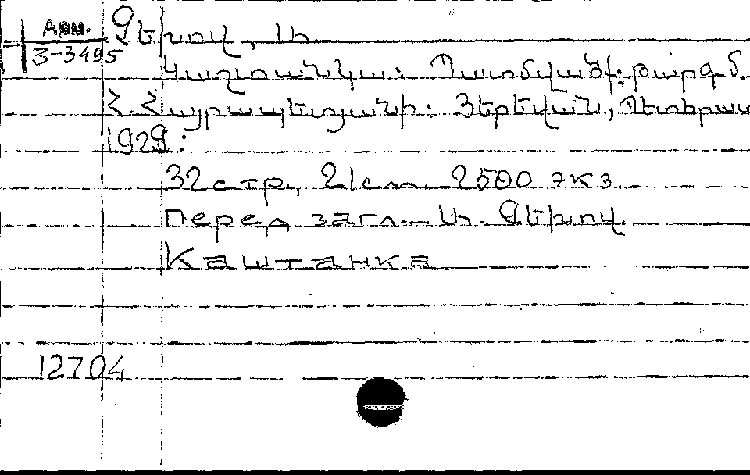 Арм.
3-3495
Չեխով, Ա.
Կաշտանկա: Պատմվածք: թարգմ.
Հ. Հայրապետյանի: Յերեվան, Պետհրատ
1929:
32 стр., 21 см. 2500 экз
Перед загл.— Ա. Չեխով.
Каштанка
12704